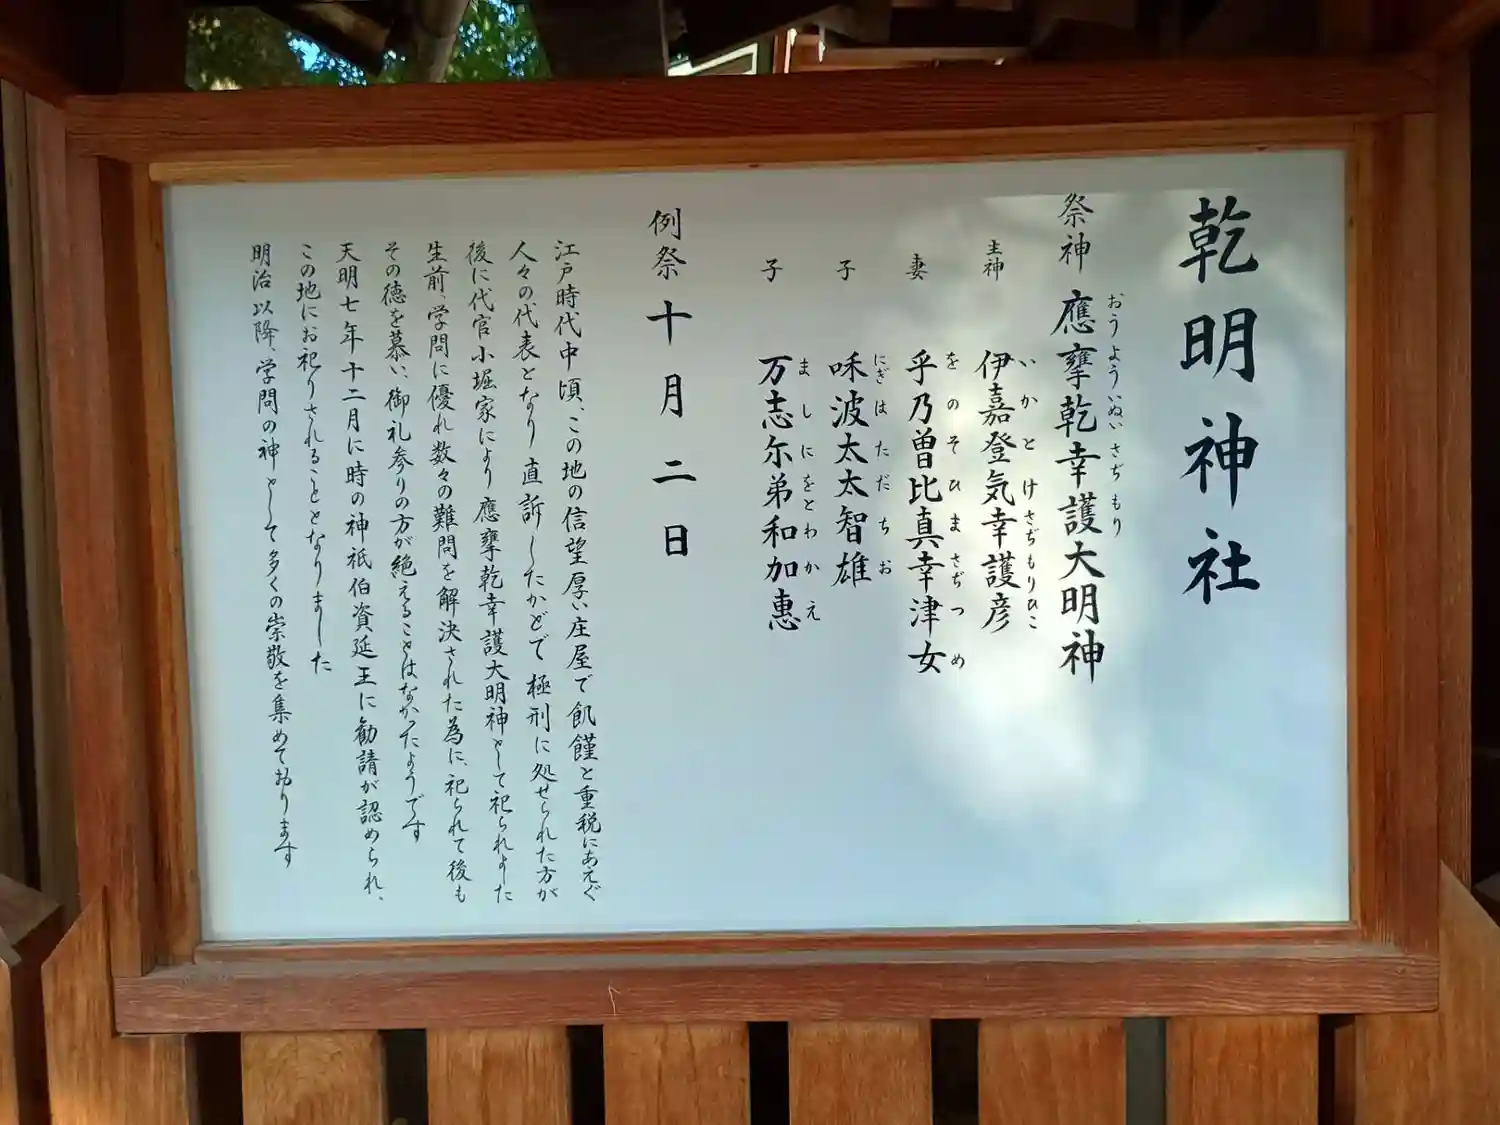 乾明神社
祭神 應犖乾幸護大明神
おうよういぬいさぢもり
主神 伊嘉登気幸護彦
いかとけさぢもりひこ
妻 乎乃曽比真幸津女
をのそひまさぢつめ
子 味波太太智雄
にぎはただちお
子 万志尓弟和加惠
ましにをとわかえ
例祭 十月二日
江戸時代中頃、この地の信望厚い庄屋で飢饉と重税にあえぐ
人々の代表となり直訴したかどで極刑に処せられた方が
後に代官小堀家により應犖乾幸護大明神として祀られました
生前、学問に優れ数々の難問を解決された為に、祀られて後も
その徳を慕い、御礼参りの方が絶えることはなかったようです
天明七年十二月に時の神祇伯資延王に勧請が認められ、
この地にお祀りされることとなりました
明治以降、学問の神として多くの崇敬を集めております